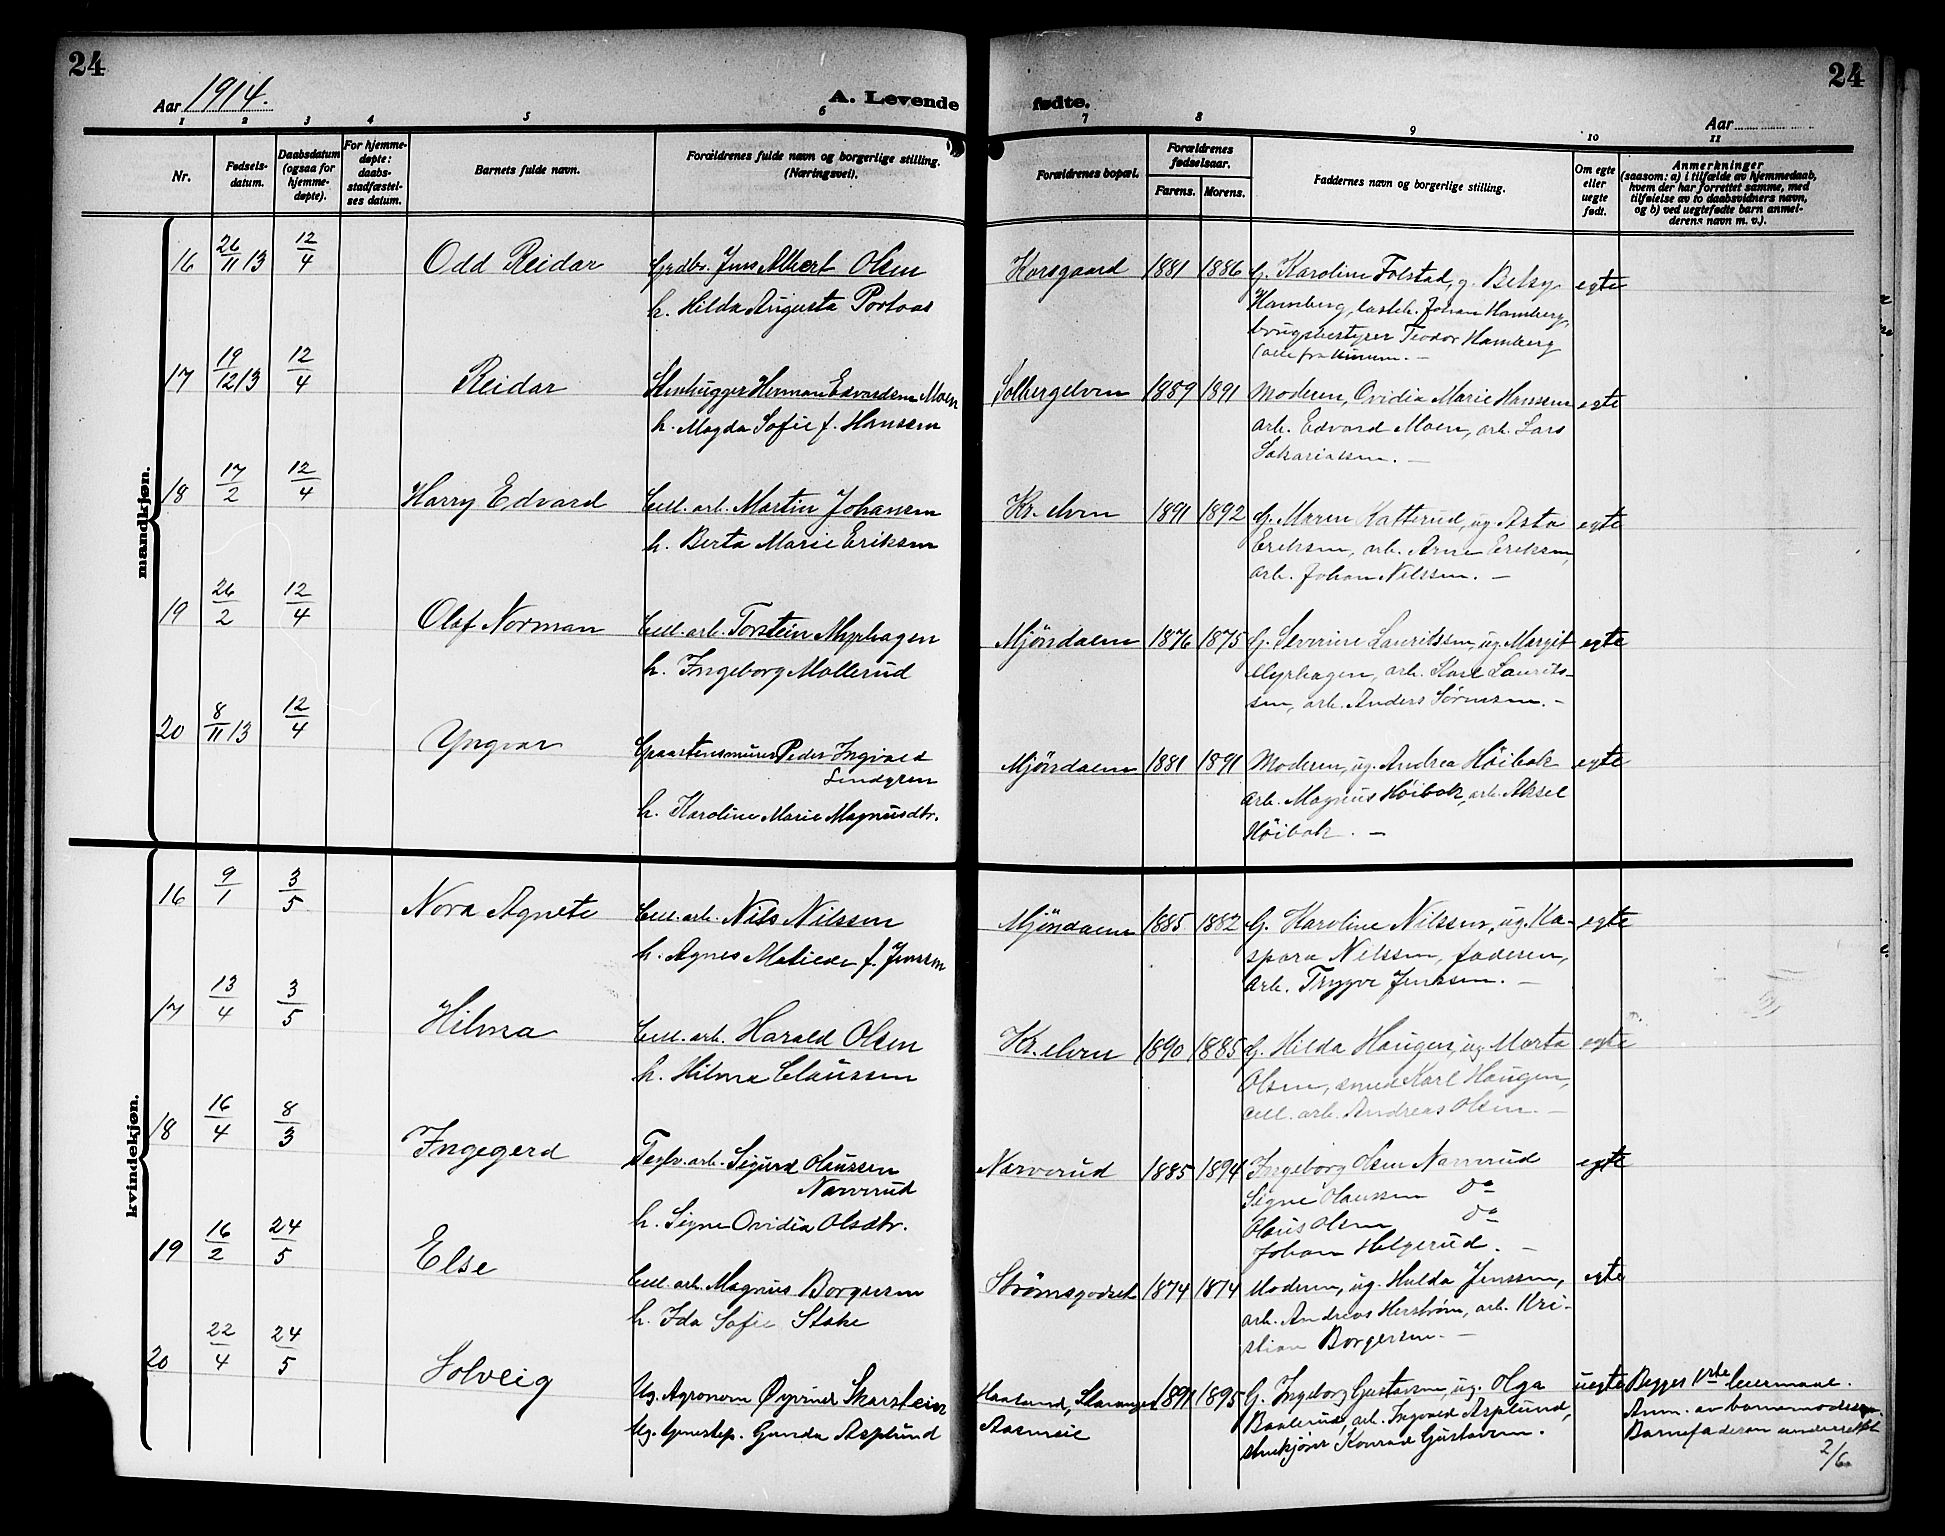 24
24
Aar 1914.
A. Levende fødte.
Aar
1 2 3 4 5 6 7 8 9 10 11
Nr.
Fødsels-
datum.
Daabsdatum
(ogsaa for
hjemme-
døpte).
For hjemme-
døpte:
daabs-
stadfæstel-
ses datum.
Barnets fulde navn.
Forældrenes fulde navn og borgerlige stilling.
(Næringsvei).
Forældrenes bopæl.
Forældrenes
fødselsaar.
Farens. Morens.
Faddernes navn og borgerlige stilling.
Om egte
eller
uegte
født.
Anmerkninger
(saasom: a) i tilfælde av hjemmedaab,
hvem der har forrettet samme, med
tilføielse av to daabsvidners navn,
og b) ved uegtefødte barn anmel-
derens navn m. v.).
mandkjøn.
16 26/11 13 12/4 Odd Reidar Grdbr. Jens Albert Olsen Korsgaard 1881 1886 G. Karoline Folstad, g. Betsy egte
h. Hilda Augusta Portaas
Hamberg, Johan Hamberg,
brugsbestyrer Teodor Hamberg
17 19/12 13 12/4 Reidar Stenhugger Herman Edvardsen Moen Solbergelven 1889 1891 Moderen, Ovidia Marie Hansen egte
h. Magda Sofie f. Hansen
arb. Edvard Moen, arb. Lars
Sakariassen. –
18 17/2 12/4 Harry Edvard Cell. arb. Martin Johansen Kr. elven 1891 1892 G. Maren Katterud, ug. Asta egte
h. Berta Marie Eriksen
Eriksen, arb. Arne Eriksen,
arb. Johan Nilssen. –
19 26/2 12/4 Olaf Norman Cell. arb. Torstein Myrhagen Mjöndalen 1876 1875 G. Severine Lauritssen, ug. Margit egte
h. Ingeborg Mollerud
Myrhagen, arb. Karl Laurits-
sen, arb. Anders Sørensen. –
20 8/11 13 12/4 Yngvar Graastensmurer Peder Ingvald Mjöndalen 1881 1891 Moderen, ug. Andrea Höibak egte
Lindgren
h. Karoline Marie Magnusdtr.
arb. Magnus Höibak, arb. Aksel
Höibak. –
kvindekjøn.
16 9/1 3/5 Nora Agnete Cell. arb. Nils Nilssen Mjöndalen 1885 1882 G. Karoline Nilssen, ug. Ka- egte
h. Agnes Matilde f. Jenssen
spara Nilssen, faderen,
arb. Trygve Jenssen. –
17 13/4 3/5 Hilma Cell. arb. Harald Olsen Kr. elven 1890 1885 G. Hilda Haugen, ug. Marta egte
h. Hilma Claussen
Olsen, smed Karl Haugen,
cell. arb. Andreas Olsen. –
18 16/4 8/3 Ingegerd Teglv. arb. Sigurd Olaussen Narverud 1885 1894 Ingeborg Olsen Narverud egte
Narverud
Signe Olaussen Do
h. Signe Ovidia Olsdtr.
Olaus Olsen Do
Johan Helgerud. –
19 16/2 24/5 Else Cell. arb. Magnus Borgersen Strömsgodset 1874 1874 Moderen, ug. Hulda Jenssen, egte
h. Ida Sofie Stake
arb. Andreas Herström, arb. Kri-
stian Borgersen. –
20 22/4 24/5 Solveig Ug. Agronom Øyvind Skarstein Haaland, Stavanger 1891 1895 G. Ingeborg Gustavsen, ug. Olga uegte Begges 1ste leiermaal.
Ug. tjenestep. Gunda Asplund Aasmeie
Baalerud, arb. Ingvald Asplund, Anm. av barnemoderen.
Konrad Gustavsen. Barnefaderen underrettet
2/6